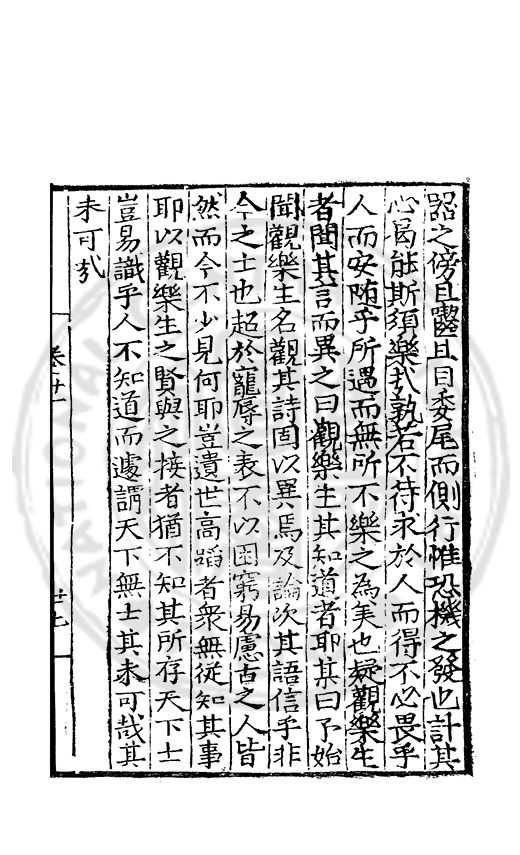 罟之傍且齧且目委尾而側行惟恐機之發也計其
心曷能斯須樂哉孰若不待求於人而得不必畏乎
人而安随乎所遇而無所不樂之為美也疑觀樂生
者聞其言而異之曰觀樂生其知道者耶某曰予始
聞觀樂生名觀其詩固以異焉及論次其語信乎非
今之士也超於寵辱之表不以困窮易慮古之人皆
然而今不少見何耶豈遺世高蹈者衆無從知其事
耶以觀樂生之賢與之接者猶不知其所存天下士
豈易識乎人不知道而遽謂天下無士其未可哉其
未可哉
卷廿一
廿七